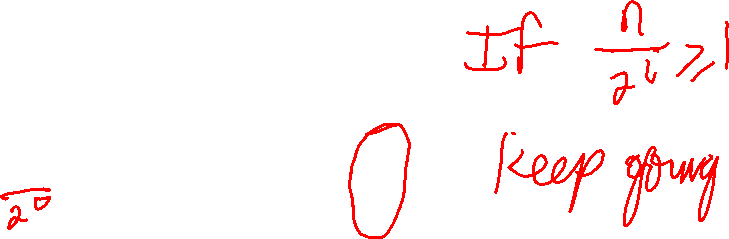 If n/2^i ≥ 1
keep going
2^0